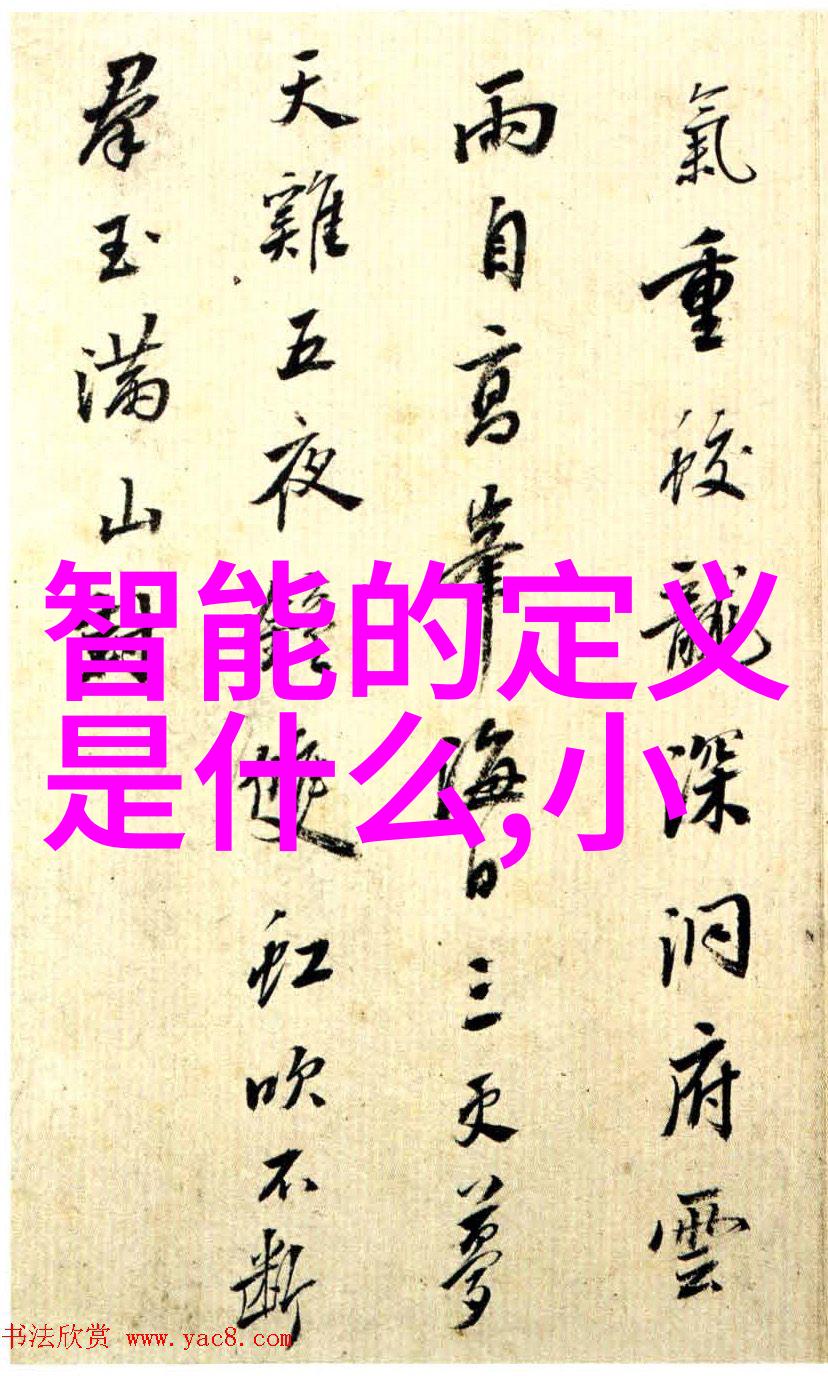 氣重蛟龍深洞府雲
雨自高峯海日三更夢
天雞五夜雙虹吹不斷
羣玉滿山
智能的定义
是什么,小
书法欣赏 www.yac8.com